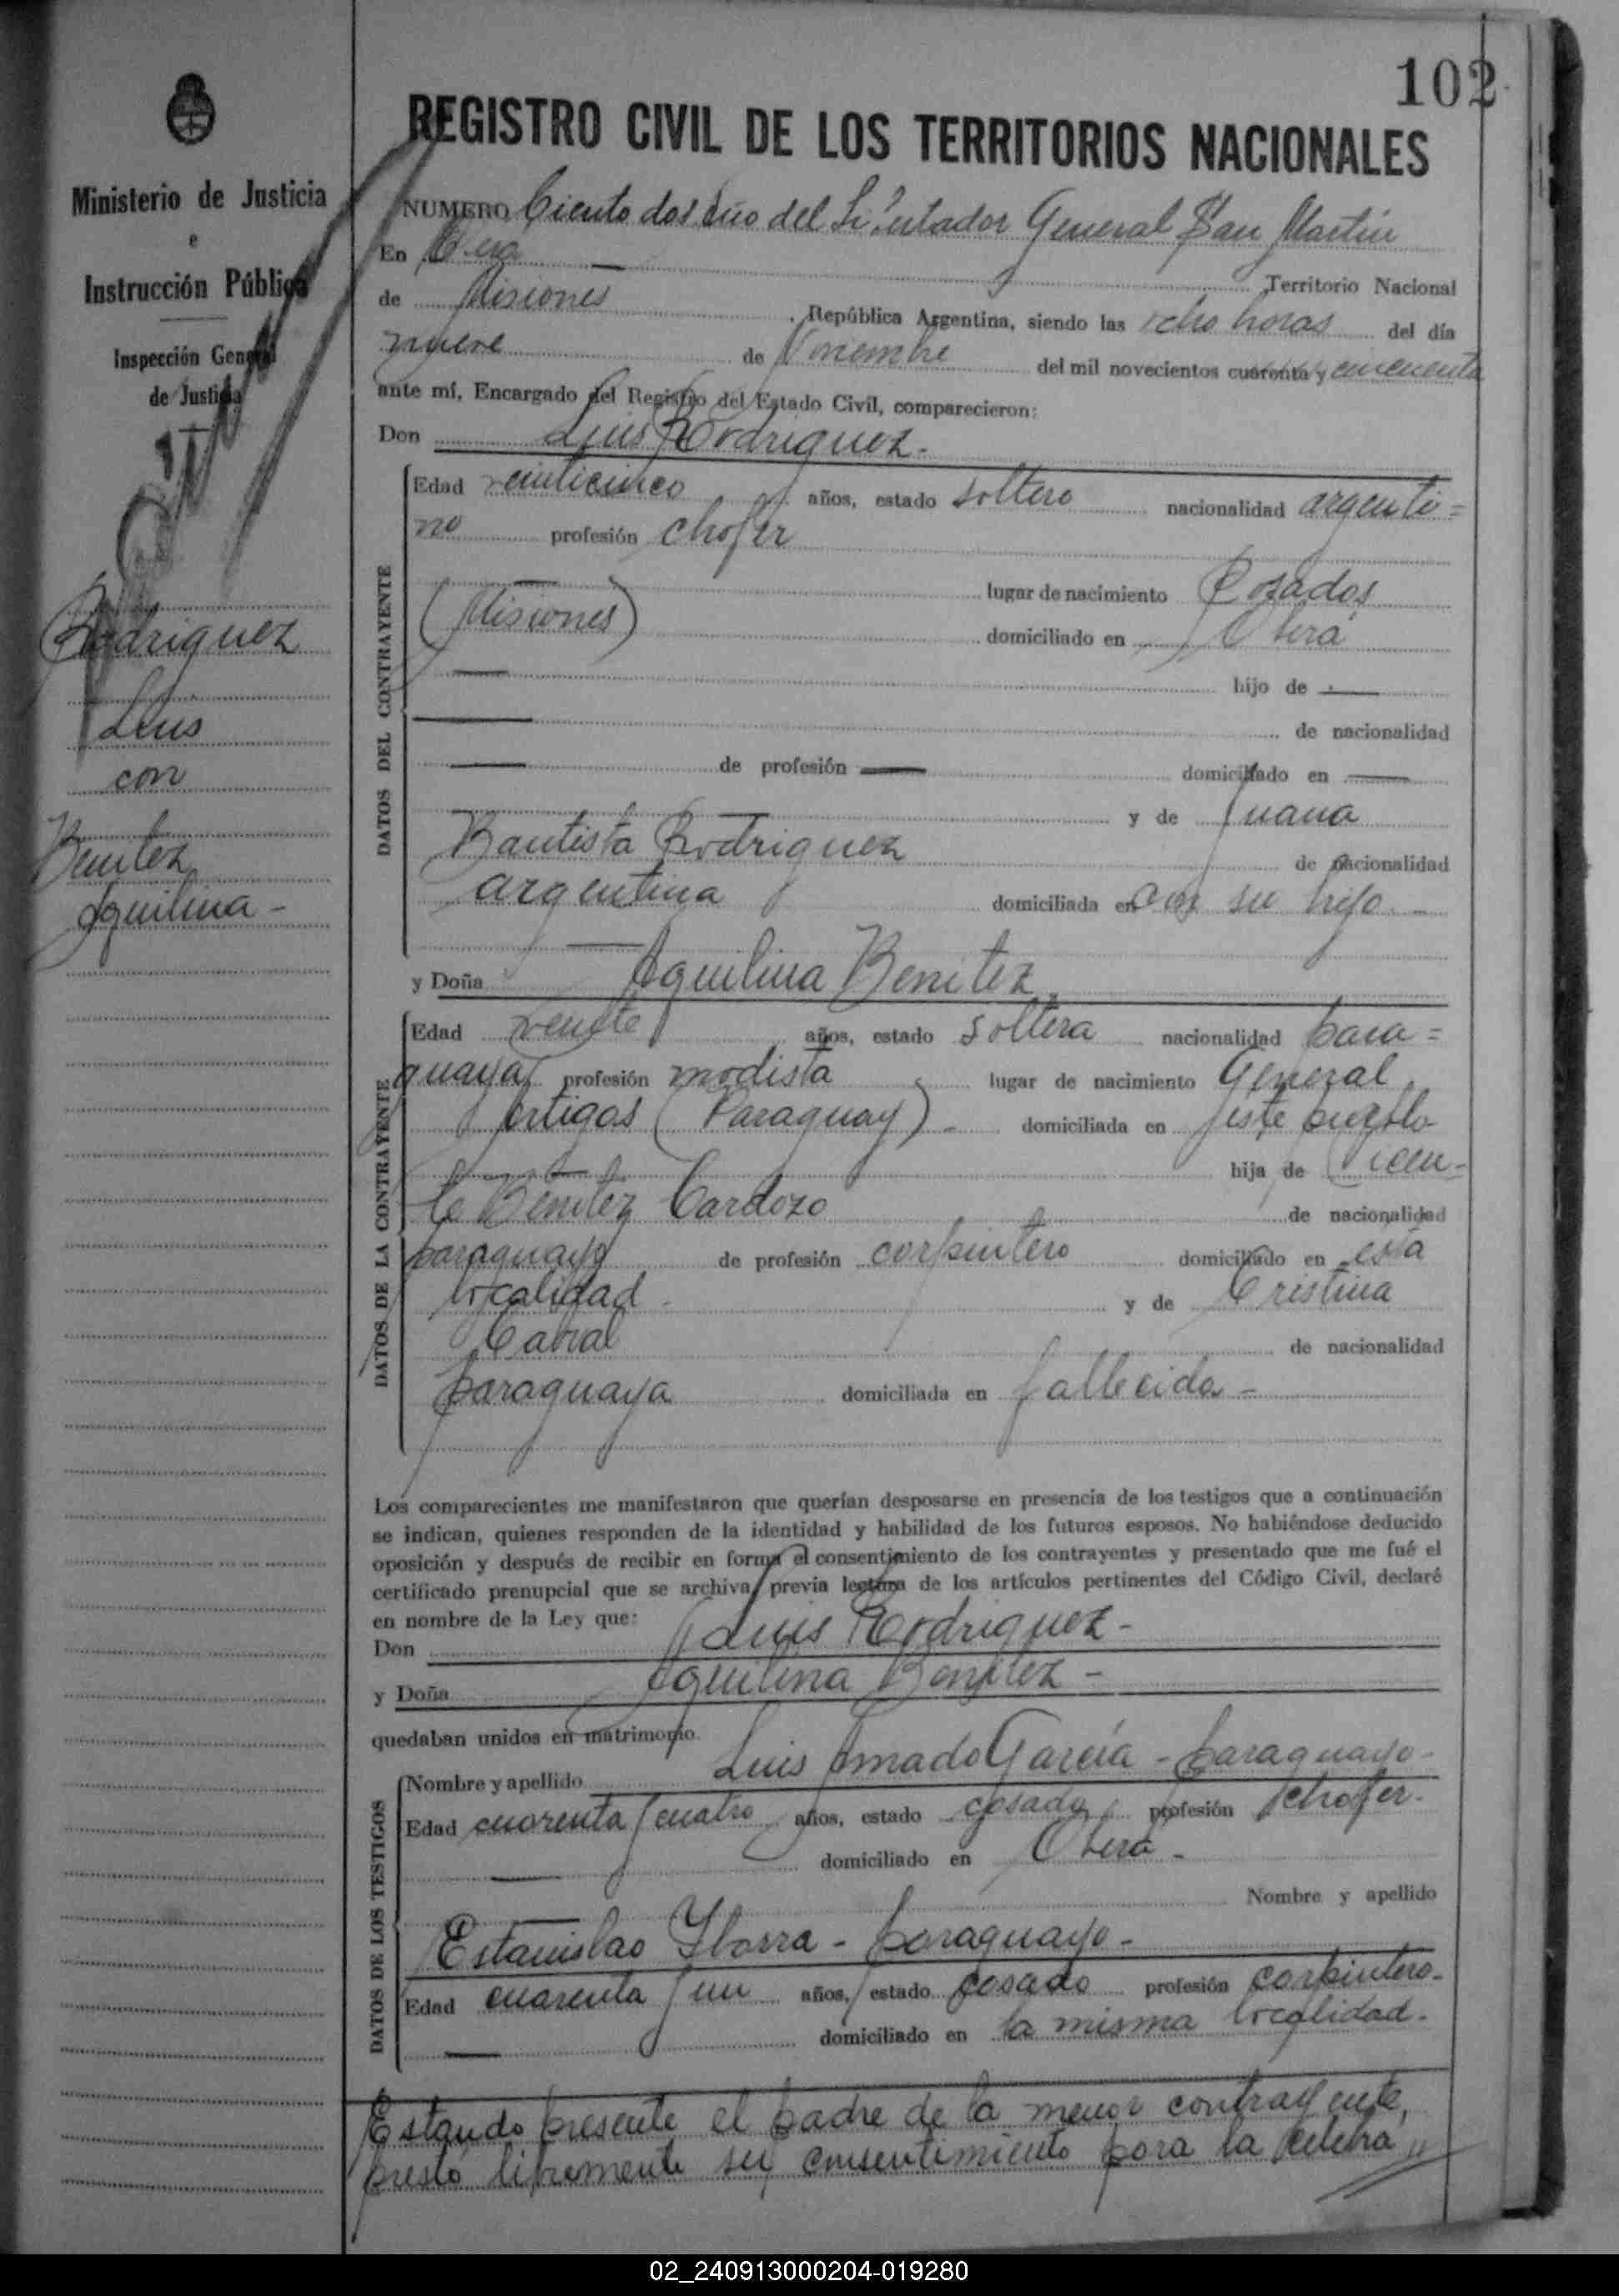 102
REGISTRO CIVIL DE LOS TERRITORIOS NACIONALES
Ministerio de Justicia
e
Instrucción Pública
Inspección General
de Justicia
Rodriguez
Luis
con
Benitez
Aquilina -
NUMERO Ciento dos Año del Li'ertador General San Martín
En Oberá Territorio Nacional
de Misiones , República Argentina, siendo las ocho horas del día
nueve de Noviembre del mil novecientos cuarenta y cincuenta
ante mí, Encargado del Registro del Estado Civil, comparecieron:
Don Luis Rodriguez.-
DATOS DEL CONTRAYENTE
Edad veinticinco años, estado soltero nacionalidad argenti=
no profesión chofer
lugar de nacimiento Posadas
(Misiones) domiciliado en Oberá
hijo de
de nacionalidad
de profesión domiciliado en
y de Juana
Bautista Rodriguez de nacionalidad
argentina domiciliada en con su hijo. -
y Doña Aquilina Benitez
DATOS DE LA CONTRAYENTE
Edad veinte años, estado soltera nacionalidad para=
guaya profesión modista lugar de nacimiento General
Artigas (Paraguay) - domiciliada en este pueblo
hija de Vicen-
te Benitez Cardozo de nacionalidad
paraguayo de profesión carpintero domiciliado en esta
localidad - y de Cristina
Cabral de nacionalidad
paraguaya domiciliada en fallecida -
Los comparecientes me manifestaron que querían desposarse en presencia de los testigos que a continuación
se indican, quienes responden de la identidad y habilidad de los futuros esposos. No habiéndose deducido
oposición y después de recibir en forma el consentimiento de los contrayentes y presentado que me fué el
certificado prenupcial que se archiva, previa lectura de los artículos pertinentes del Código Civil, declaré
en nombre de la Ley que:
Don Luis Rodriguez -
y Doña Aquilina Benitez -
quedaban unidos en matrimonio.
DATOS DE LOS TESTIGOS
Nombre y apellido Luis Amado García - paraguayo -
Edad cuarenta y cuatro años, estado casado profesión chofer.
domiciliado en Oberá -
Nombre y apellido
Estanislao Ybarra - paraguayo -
Edad cuarenta y un años, estado casado profesión carpintero -
domiciliado en la misma localidad.
Estando presente el padre de la menor contrayente,
prestó libremente su consentimiento para la celebra "
02_240913000204-019280